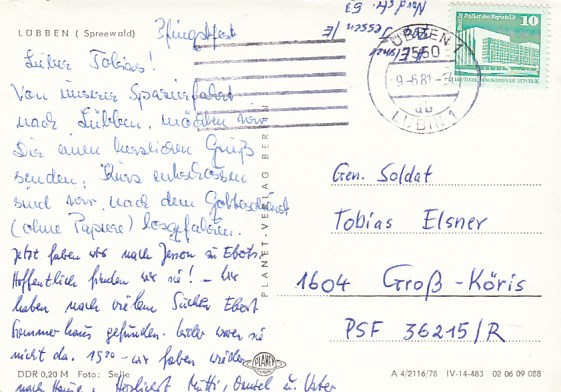 LÜBBEN ( Spreewald)
Pfingstfest
Lieber Tobias!
Von unserer Spazierfahrt
nach Lübben, möchten wir
Dir einen herzlichen Gruß
senden. Kurz entschlossen
sind wir nach dem Gottesdienst
(ohne Papiere) losgefahren.
Jetzt fahren wir nach Jessen zu Eberts.
Hoffentlich finden wir sie! - Wir
haben nach vielem Suchen Ebert
Sommerhaus gefunden. Leider waren sie
nicht da. 15 20 - wir fahren wieder
nach Hause. Herzliebst Mutti, Onkel u. Vater
DDR 0,20 M Foto: Seile
PLANET-VERLAG BERLIN
PLANET
Elsner
Jessen /E
Nordstr. 53
LÜBBEN 1
7550
-9.-6.81-
ab
LUBIN 1
Palast der Republik 10
Gen. Soldat
Tobias Elsner
1604 Groß-Köris
PSF 36215/R
A 4/2116/78 IV-14-483 02 06 09 088